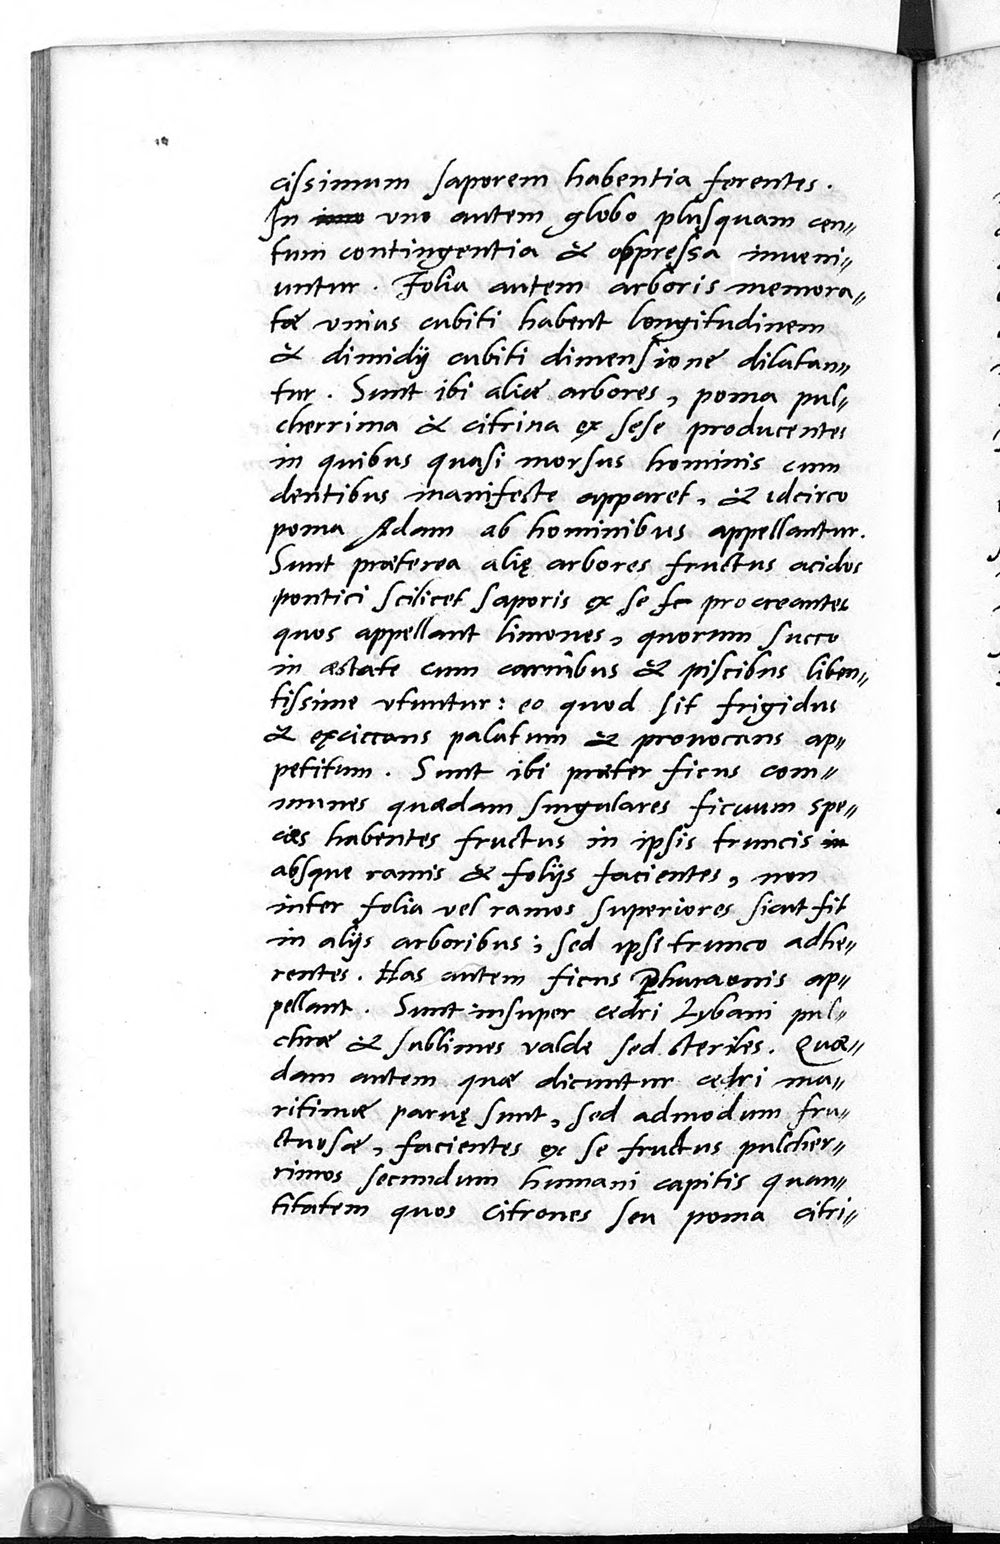 cissimum saporem habentia ferentes.
In imo vno autem globo plusquam cen„
tum contingentia & oppressa inueni„
untur. Folia autem arboris memora„
tæ vnius cubiti habent longitudinem
& dimidij cubiti dimensione dilatan„
tur. Sunt ibi aliæ arbores, poma pul„
cherrima & citrina ex sese producentes
in quibus quasi morsus hominis cum
dentibus manifeste apparet, & idcirco
poma Adam ab hominibus appellantur.
Sunt præterea alię arbores fructus acidos
pontici scilicet saporis ex se procreantes
quos appellant limones, quorum succo
in æstate cum carnibus & piscibus liben„
tissime vtuntur: eo quod sit frigidus
& exiccans palatum & prouocans ap„
petitum. Sunt ibi præter ficus com„
munes quædam singulares ficuum spe„
cies habentes fructus in ipsis truncis in
absque ramis & folijs facientes, non
inter folia vel ramos superiores sicut fit
in alijs arboribus; sed ipsi trunco adhe„
rentes. Has autem ficus Pharaonis ap„
pellant. Sunt insuper cedri Lybani pul„
chræ & sublimes valde sed steriles. Quæ„
dam autem quæ dicuntur cedri ma„
ritimæ paruę sunt, sed admodum fru„
ctuosæ, facientes ex se fructus pulcher„
rimos secundum humani capitis quan„
titatem quos citrones seu poma citri„